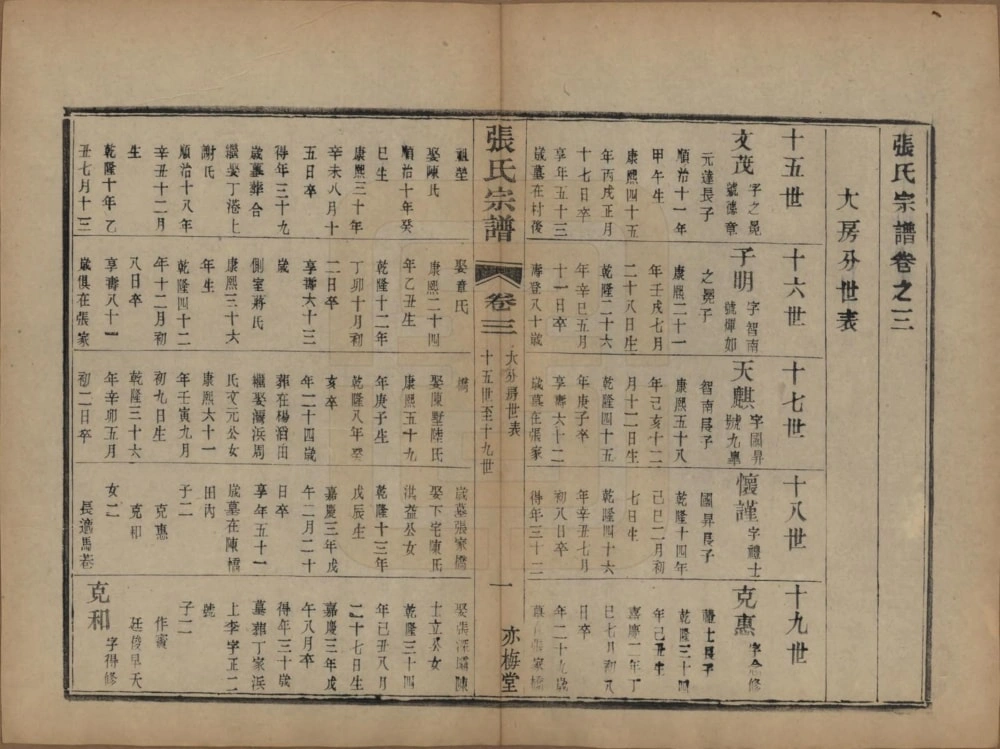 張氏宗譜卷之三
大房分世表
十五世
文茂
字之冕
號德章
元達長子
順治十一年
甲午生
康熙四十五
年丙戌正月
十七日卒
享年五十三
歲墓在村後
祖塋
娶陳氏
順治十年癸
巳生
康熙三十年
辛未八月十
五日卒
得年三十九
歲墓葬合
繼娶丁港上
謝氏
順治十八年
辛丑十二月
生
乾隆十年乙
丑七月十三
十六世
子明
字智南
號輝如
之冕子
康熙二十一
年壬戌七月
二十八日生
乾隆二十六
年辛巳五月
十一日卒
壽登八十歲
娶章氏
康熙二十四
年乙丑生
乾隆十二年
丁卯十月初
二日卒
享壽六十三
歲
側室蔣氏
康熙三十六
年生
乾隆四十二
年十二月初
八日卒
享壽八十一
歲俱在張家
十七世
天麒
字圖昇
號九臯
智南長子
康熙五十八
年己亥十二
月十一日生
乾隆四十五
年庚子卒
享壽六十二
歲墓在張家
橋
娶陳墅陸氏
康熙五十九
年庚子生
乾隆八年癸
亥卒
年二十四歲
葬在楊滔由
繼娶濔浜周
氏文元公女
康熙六十一
年壬寅九月
初九日生
乾隆三十六
年辛卯五月
初二日卒
十八世
懷謹
字禮士
圖昇長子
乾隆十四年
己巳二月初
七日生
乾隆四十六
年辛丑七月
初八日卒
得年三十三
歲墓張家橋
娶下宅陳氏
洪益公女
乾隆十三年
戊辰生
嘉慶三年戊
午二月二十
日卒
享年五十一
歲墓在陳橋
田內
子二
克惠
克和
女二
長適馬巷
十九世
克惠
字念修
禮士長子
乾隆三十四
年己丑生
嘉慶二年丁
巳七月初八
日卒
年二十九歲
墓在張家橋
娶張深壩陳
士立公女
乾隆三十四
年己丑八月
二十七日生
嘉慶三年戊
午八月卒
得年三十歲
墓葬丁家浜
上李字正二
號
子二
作賓
廷俊早夭
克和
字得修
張氏宗譜
卷三
大分房世表
十五世至十九世
一
亦梅堂